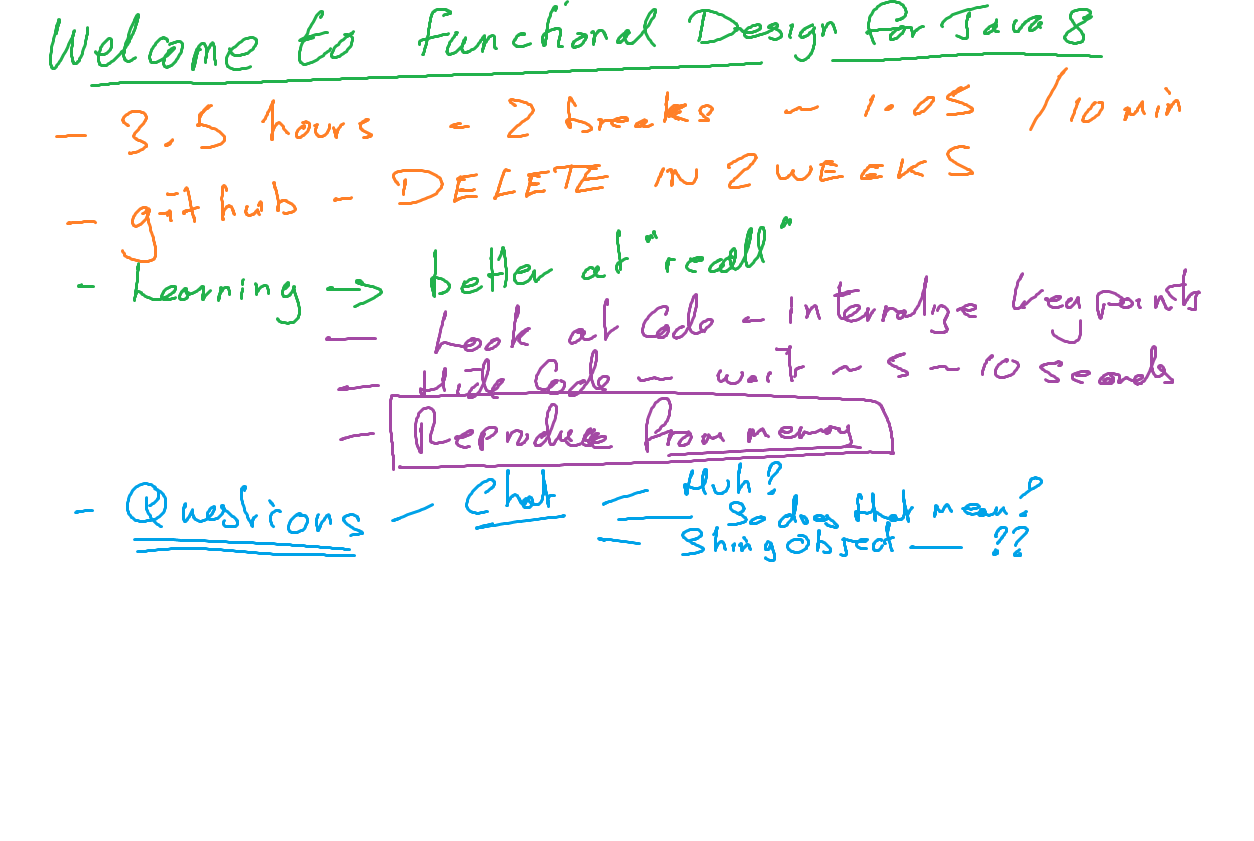 Welcome to Functional Design for Java 8
- 3.5 hours - 2 breaks ~ 1.05 / 10 min
- github - DELETE IN 2 WEEKS
- Learning → better at "recall"
— Look at Code - Internalize key points
— Hide Code — wait ~ 5 ~ 10 seconds
— Reproduce from memory
- Questions — Chat — Huh?
— So does that mean?
— String Object — ??